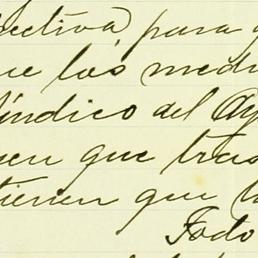 ectiva, para q
ue los medi
Síndico del Ay
en que tras
tienen que la
Todo